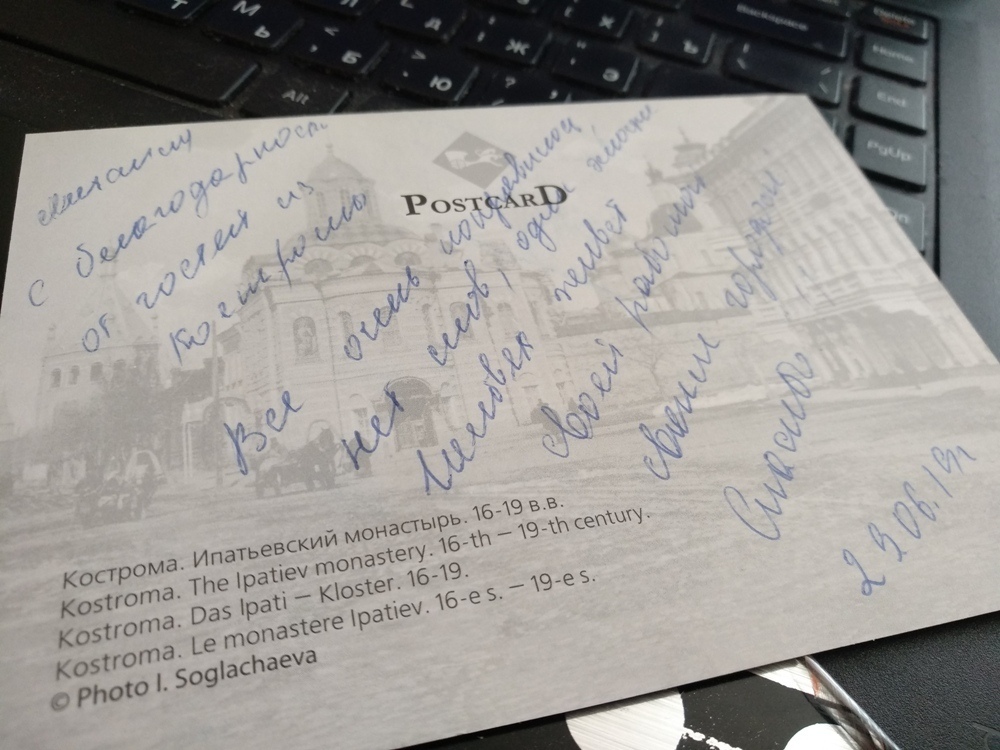 Михаилу
с благодарностью
от гостей из
Костромы
POSTCARD
Все очень понравилось
нет слов, одни эмоции
Человек живет
своей работой
своим городом!!!
Спасибо
29.06.19г
Кострома. Ипатьевский монастырь. 16-19 в.в.
Kostroma. The Ipatiev monastery. 16-th – 19-th century.
Kostroma. Das Ipati – Kloster. 16-19.
Kostroma. Le monastere Ipatiev. 16-e s. – 19-e s.
© Photo I. Soglachaeva
Backspace
Home
End
PgUp
Alt
Т
Ь
Б
Ю
Д
Ж
Э
Х
Ъ
М